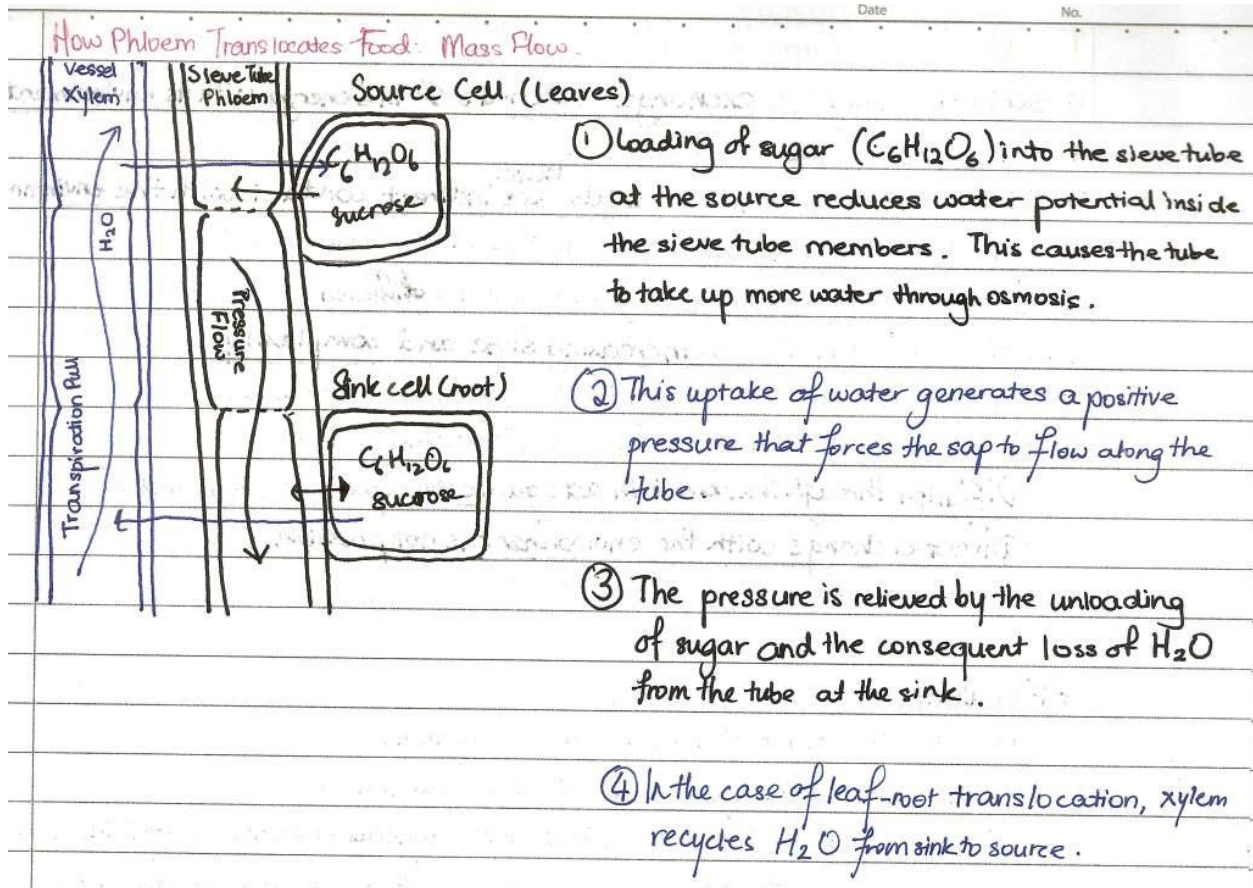 Date No.
How Phloem Translocates Food: Mass Flow.
Vessel
Xylem
Sieve Tube
Phloem
Source Cell (Leaves)
C6H12O6
sucrose
H2O
Transpiration Pull
Pressure
Flow
Sink cell (root)
C6H12O6
sucrose
① Loading of sugar (C6H12O6) into the sieve tube
at the source reduces water potential inside
the sieve tube members. This causes the tube
to take up more water through osmosis.
② This uptake of water generates a positive
pressure that forces the sap to flow along the
tube
③ The pressure is relieved by the unloading
of sugar and the consequent loss of H2O
from the tube at the sink.
④ In the case of leaf-root translocation, xylem
recycles H2O from sink to source.